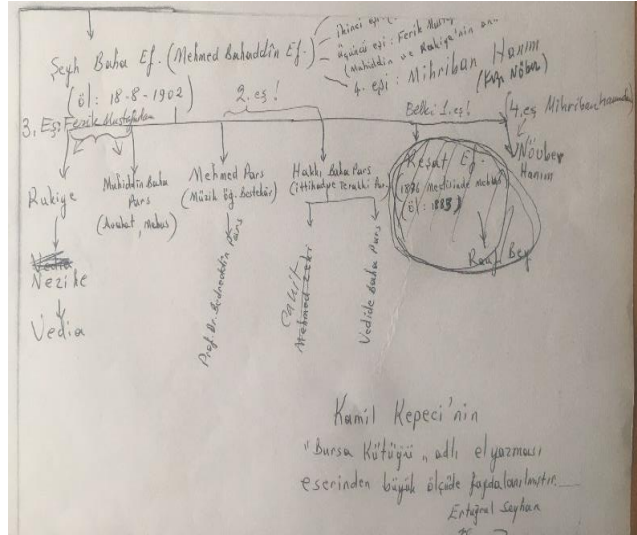 ikinci eşi
üçüncü eşi: Ferik Mustafa
(Muhiddin ve Rakiye'nin an
4. eşi: Mihriban Hanım
(Kızı Nöber)
Şeyh Baha Ef. (Mehmed Bahaddin Ef.)
(öl: 18-8-1902)
2. eş!
3. Eşi Ferik Mustafadan
Belki 1. eş!
(4. eş Mihriban Hanımdan)
Rukiye
Muhiddin Baha
Pars
(Avukat, Mebus)
Mehmed Pars
(Müzik Öğ. Bestekâr)
Hakkı Baha Pars
(İttihad ve Terakki Par.)
Reşat Ef.
(1896 meclisinde mebus)
(öl: 1883)
Nöuber
Hanım
Rauf Bey
Vedia
Nezihe
Vedia
Prof. Dr. Bedreddin Pars
Cahit
Mehmed Zeki
Vedide Baha Pars
Kamil Kepeci'nin
"Bursa Kütüğü" adlı elyazması
eserinden büyük ölçüde faydalanılmıştır.
Ertuğrul Seyhan